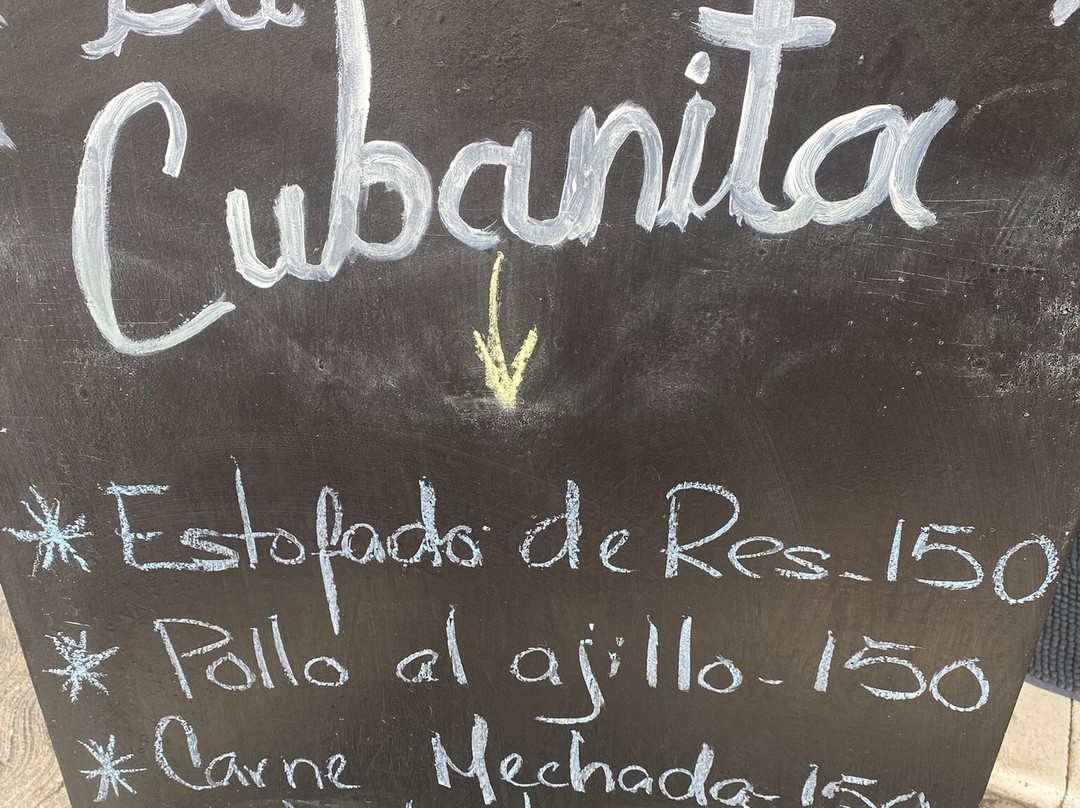 La
Cubanita
* Estofado de Res - 150
* Pollo al ajillo - 150
* Carne Mechada - 150